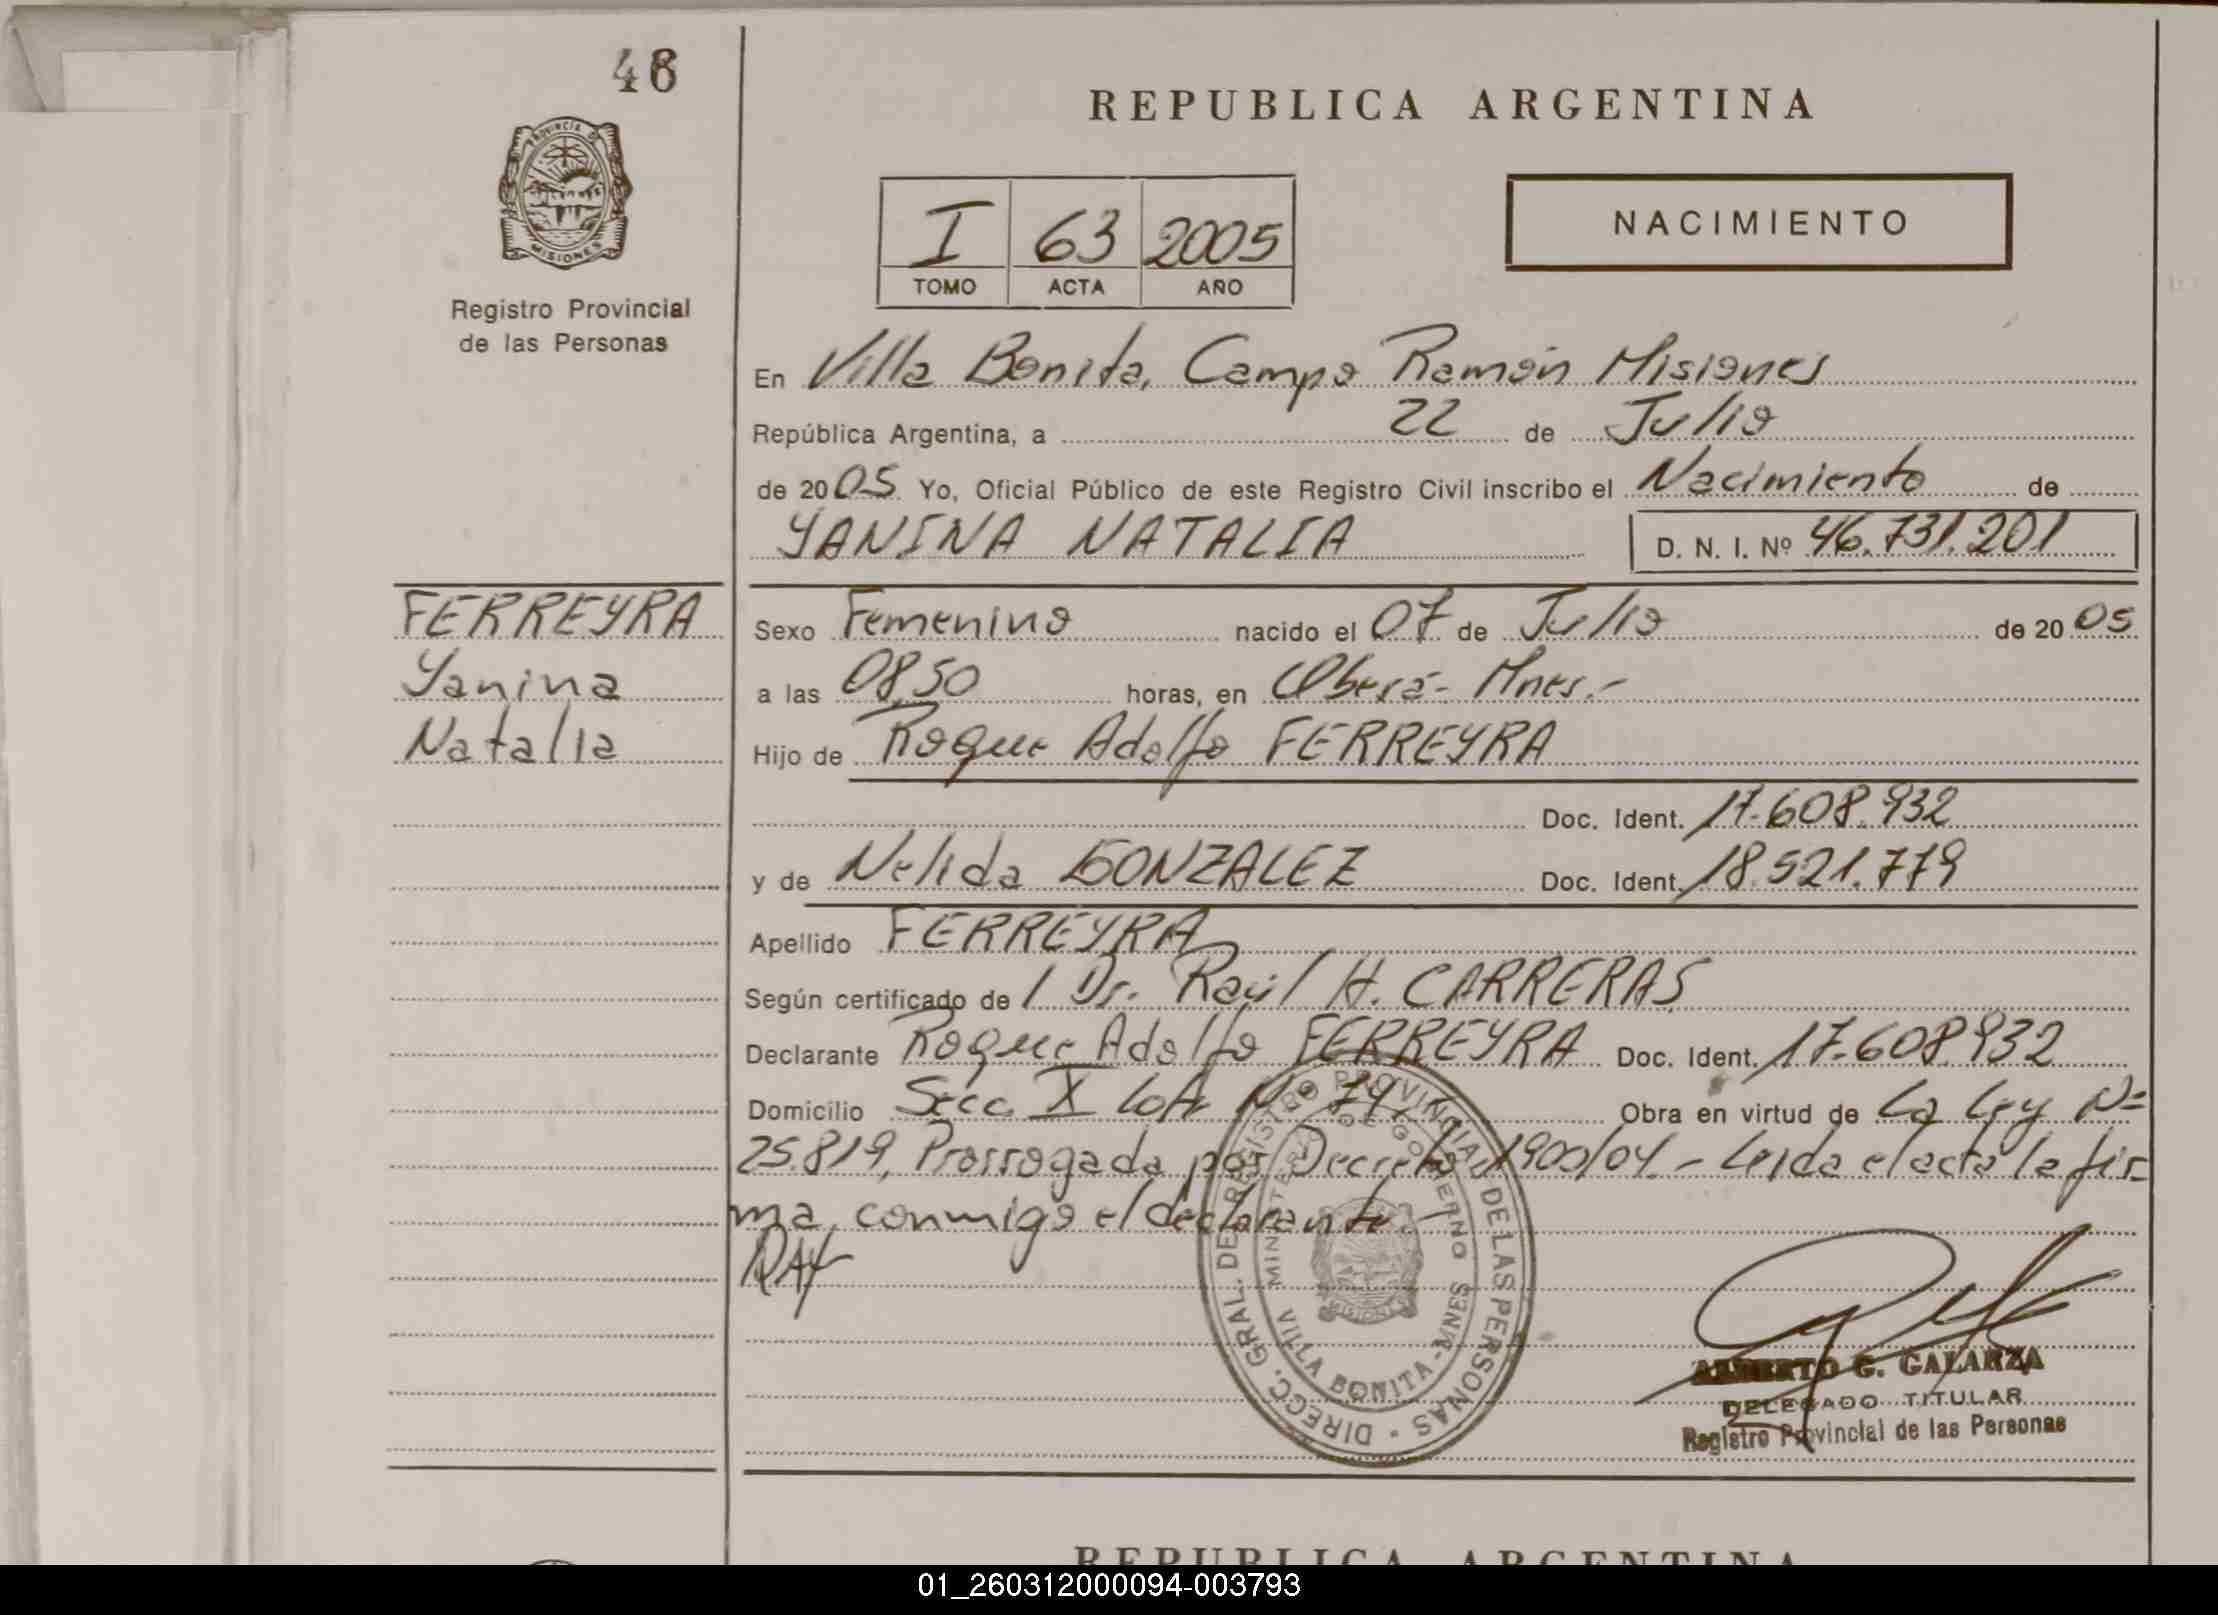 46
REPUBLICA ARGENTINA
PROVINCIA D
MISIONES
Registro Provincial
de las Personas
I 63 2005
TOMO ACTA AÑO
NACIMIENTO
En Villa Bonita, Campo Ramón Misiones
República Argentina, a 22 de Julio
de 2005 Yo, Oficial Público de este Registro Civil inscribo el Nacimiento de
YANINA NATALIA D. N. I. Nº 46.731.201
FERREYRA
Yanina
Natalia
Sexo Femenino nacido el 07 de Julio de 2005
a las 08,50 horas, en Oberá- Mnes.-
Hijo de Roque Adolfo FERREYRA
Doc. Ident. 17.608.932
y de Nelida GONZALEZ Doc. Ident. 18.521.779
Apellido FERREYRA
Según certificado de / Dr. Raúl H. CARRERAS
Declarante Roque Adolfo FERREYRA Doc. Ident. 17.608.932
Domicilio Secc. X Lote Nº 79.- Obra en virtud de La Ley Nº
25.819, Prorrogada por Decreto 1900/04.- Leida el acta la fir-
ma conmigo el declarante.-
DIRECC. GRAL. DE REGISTRO PROVINCIAL DE LAS PERSONAS
MINISTERIO DE GOBIERNO
VILLA BONITA - MNES
MISIONES
G. GALARZA
DELEGADO TITULAR
Registro Provincial de las Personas
REPUBLICA ARGENTINA
01_260312000094-003793